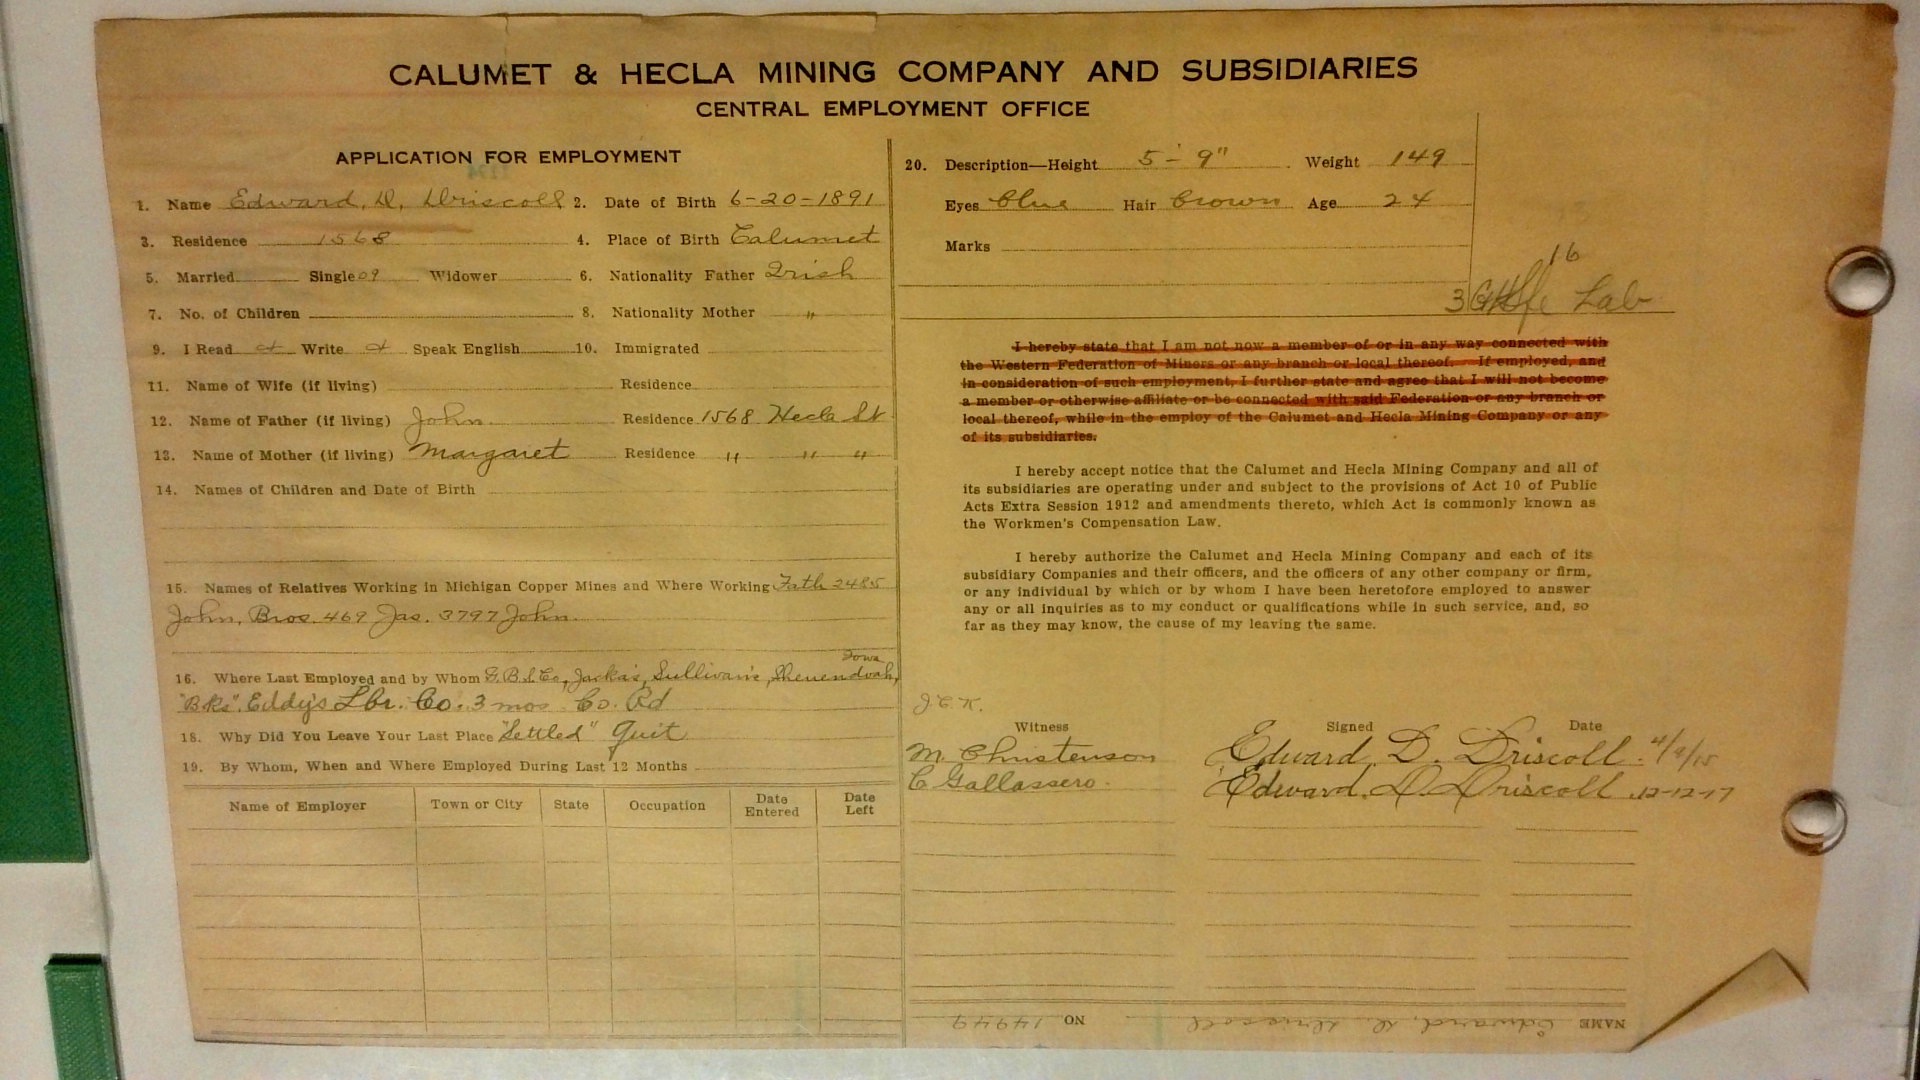 CALUMET & HECLA MINING COMPANY AND SUBSIDIARIES
CENTRAL EMPLOYMENT OFFICE
APPLICATION FOR EMPLOYMENT
1. Name Edward, D, Driscoll 2. Date of Birth 6-20-1891
3. Residence 1568 4. Place of Birth Calumet
5. Married Single Widower 6. Nationality Father Irish
7. No. of Children 8. Nationality Mother "
9. I Read Write Speak English 10. Immigrated
11. Name of Wife (if living) Residence
12. Name of Father (if living) John Residence 1568 Hecla St
13. Name of Mother (if living) Margaret Residence " " "
14. Names of Children and Date of Birth
15. Names of Relatives Working in Michigan Copper Mines and Where Working Fath 2485
John, Bros. 469 Jas. 3797 John.
Iowa
16. Where Last Employed and by Whom Sullivan's, Shenendoah,
Eddy's Lbr. Co. 3 mos Co. Rd
18. Why Did You Leave Your Last Place "Settled" Quit
19. By Whom, When and Where Employed During Last 12 Months
Name of Employer Town or City State Occupation Date Entered Date Left
20. Description—Height 5'-9" Weight 149
Eyes blue Hair brown Age 24
Marks
16
3 Lab
I hereby state that I am not now a member of or in any way connected with
the Western Federation of Miners or any branch or local thereof. If employed, and
in consideration of such employment, I further state and agree that I will not become
a member or otherwise affiliate or be connected with said Federation or any branch or
local thereof, while in the employ of the Calumet and Hecla Mining Company or any
of its subsidiaries.
I hereby accept notice that the Calumet and Hecla Mining Company and all of
its subsidiaries are operating under and subject to the provisions of Act 10 of Public
Acts Extra Session 1912 and amendments thereto, which Act is commonly known as
the Workmen's Compensation Law.
I hereby authorize the Calumet and Hecla Mining Company and each of its
subsidiary Companies and their officers, and the officers of any other company or firm,
or any individual by which or by whom I have been heretofore employed to answer
any or all inquiries as to my conduct or qualifications while in such service, and, so
far as they may know, the cause of my leaving the same.
J.C.K.
Witness Signed Date
M. Christenson Edward D. Driscoll. 4/9/15
C Gallassero. Edward, D. Driscoll 12-12-17
NAME Edward, D. Driscoll NO 14949